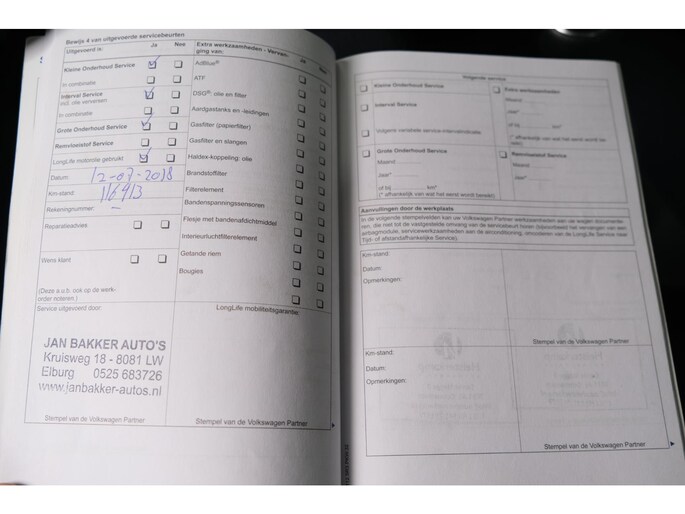 Bewijs 4 van uitgevoerde servicebeurten
Uitgevoerd is: Ja Nee
Kleine Onderhoud Service
In combinatie
Interval Service
incl. olie verversen
In combinatie
Grote Onderhoud Service
Remvloeistof Service
LongLife motorolie gebruikt
Datum: 12-07-2018
Km-stand: 116913
Rekeningnummer: -
Reparatieadvies
Wens klant
(Deze a.u.b. ook op de werk-
order noteren.)
Service uitgevoerd door:
JAN BAKKER AUTO'S
Kruisweg 18 - 8081 LW
Elburg 0525 683726
www.janbakker-autos.nl
Stempel van de Volkswagen Partner
Extra werkzaamheden - Vervan-
ging van: Ja Nee
AdBlue®
ATF
DSG®: olie en filter
Aardgastanks en -leidingen
Gasfilter (papierfilter)
Gasfilter en slangen
Haldex-koppeling: olie
Brandstoffilter
Filterelement
Bandenspanningssensoren
Flesje met bandenafdichtmiddel
Interieurluchtfilterelement
Getande riem
Bougies
LongLife mobiliteitsgarantie:
Stempel van de Volkswagen Partner
Volgende service
Kleine Onderhoud Service
Interval Service
Volgens variabele service-intervalindicatie
Grote Onderhoud Service
Maand
Jaar*
of bij km*
(* afhankelijk van wat het eerst wordt bereikt)
Extra werkzaamheden
Maand
Jaar*
of bij km*
(* afhankelijk van wat het eerst wordt be-
reikt)
Remvloeistof Service
Maand
Jaar
Aanvullingen door de werkplaats
In de volgende stempelvelden kan uw Volkswagen Partner werkzaamheden aan uw wagen documente-
ren, die niet tot de vastgestelde omvang van de servicebeurt horen (bijvoorbeeld het vervangen van een
airbagmodule, servicewerkzaamheden aan de airconditioning, omzetten van LongLife Service naar
Tijd- of afstandafhankelijke Service).
Km-stand:
Datum:
Opmerkingen:
Stempel van de Volkswagen Partner
Km-stand:
Datum:
Opmerkingen:
Stempel van de Volkswagen Partner